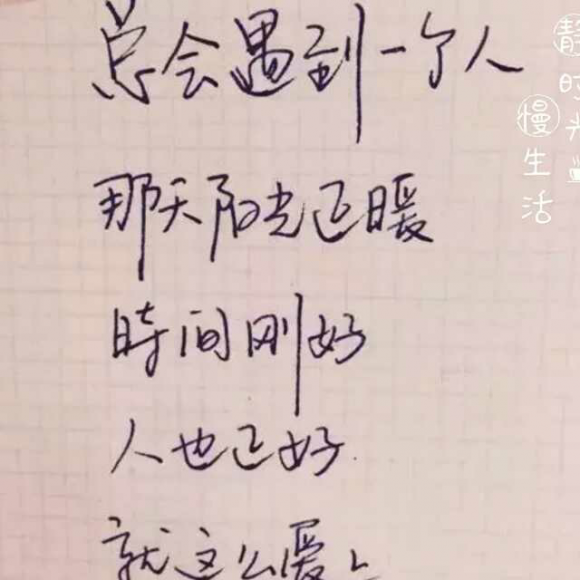 总会遇到一个人
那天阳光正暖
時间刚好
人也正好
就这么爱上
静時光
慢生活